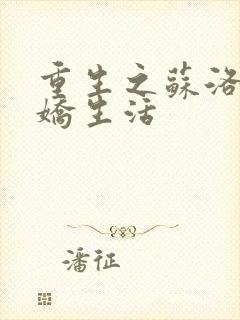 重生之蘇洛
嬌生活
潘征